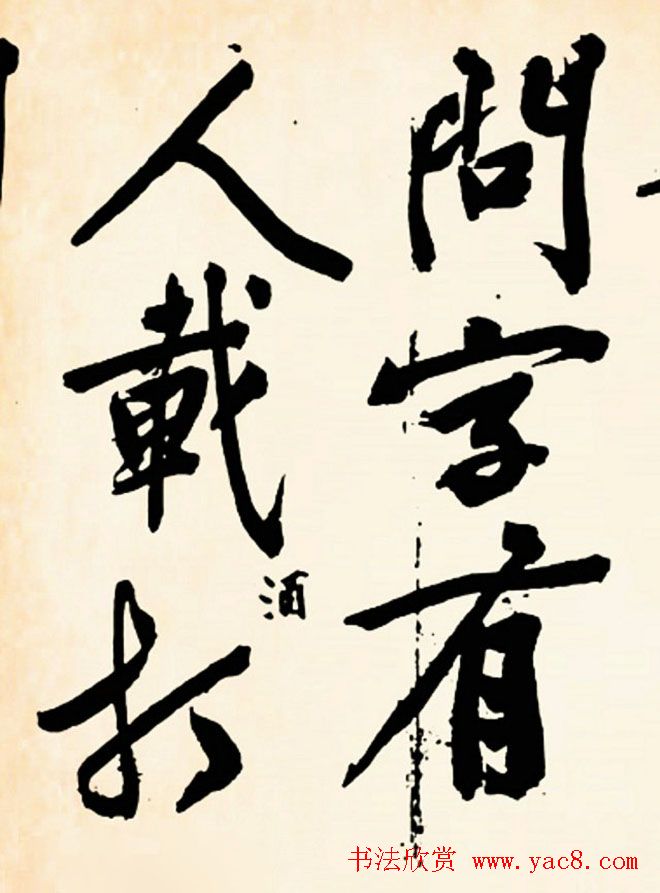 問字有
人載酒
书法欣赏 www.yac8.com